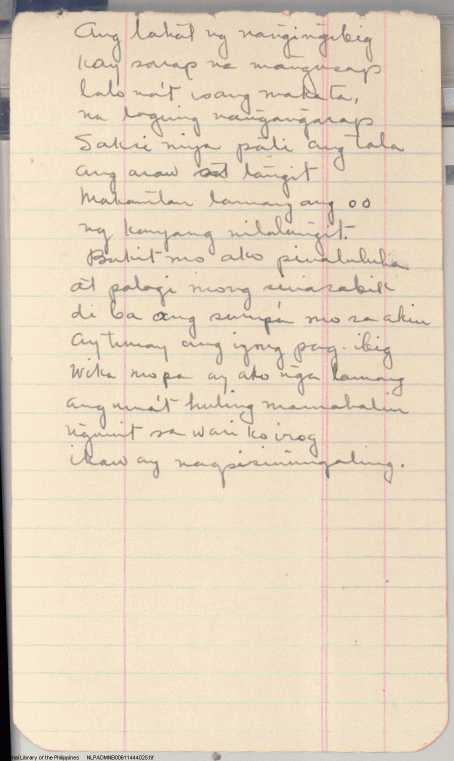 Ang lahat ng nangingibig
kay sarap na mangusap
lalo na't isang makata,
na laging nangangarap
Saksi niya pati ang tala
ang araw sa langit
Makamtan lamang ang oo
ng kanyang nililangit.
Bakit mo ako pinaluluha
at palagi mong sinasabik
di ba ang sumpa mo sa akin
ay tunay ang iyong pag-ibig
Wika mo pa ay ako nga lamang
ang una't huling mamahalin
nguni't sa wari ko irog
ikaw ay nagsisinungaling.
nal Library of the Philippines NLPADMNB00611444025.tif